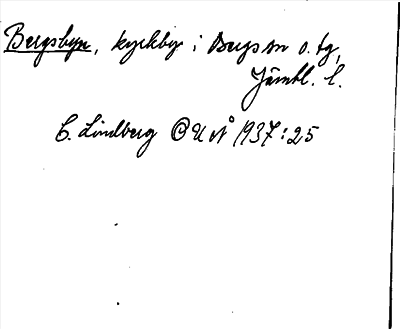 Bergsbyn, kyrkby i Bergs sn o. tg,
Jämtl. l.
C. Lindberg OUÅ 1937:25